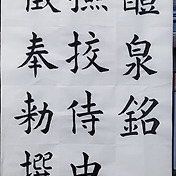 醴泉銘
挍侍中
徵奉勅撰